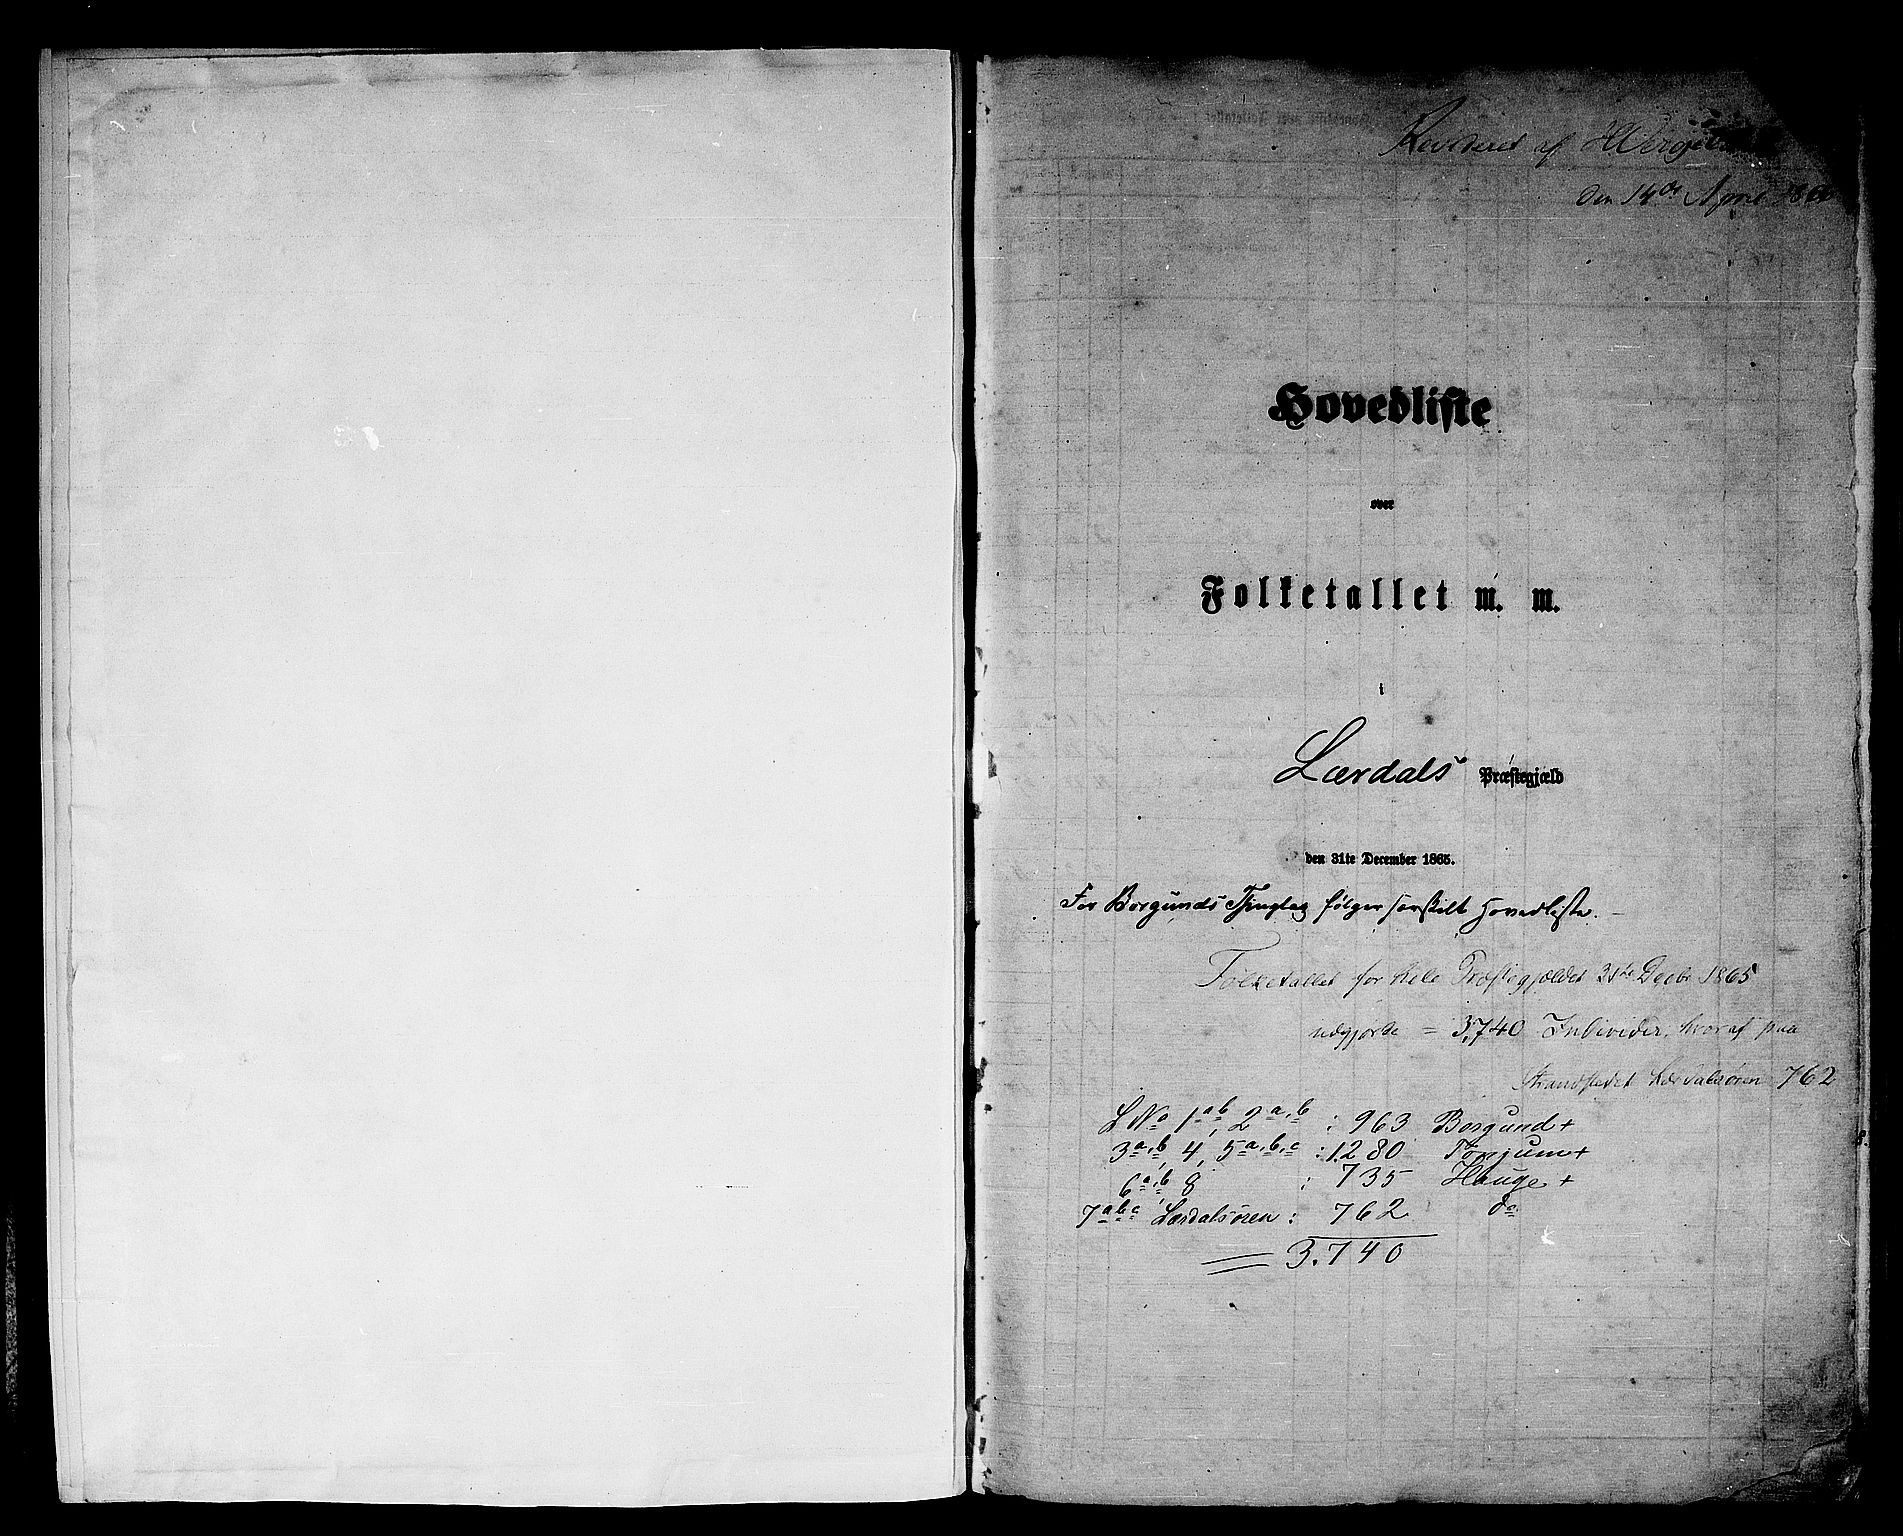 Revideret af
den 14de April 186
Hovedliste
over
Folketallet m. m.
i
Lærdals Præstegjæld
den 31te December 1865.
For Borgunds Thinglag følger særskilt Hovedliste.
Folketallet for hele Præstegjældet 31te Decbr 1865
udgjorde = 3,740 Individer, hvoraf paa
Strandstedet Lærdalsøren 762
L No 1a,b, 2a,b : 963 Borgund +
3a,b, 4, 5a,b,c : 1280 Tønjum +
6a,b, 8 : 735 Hauge +
7abc Lærdalsøren : 762 do
3.740